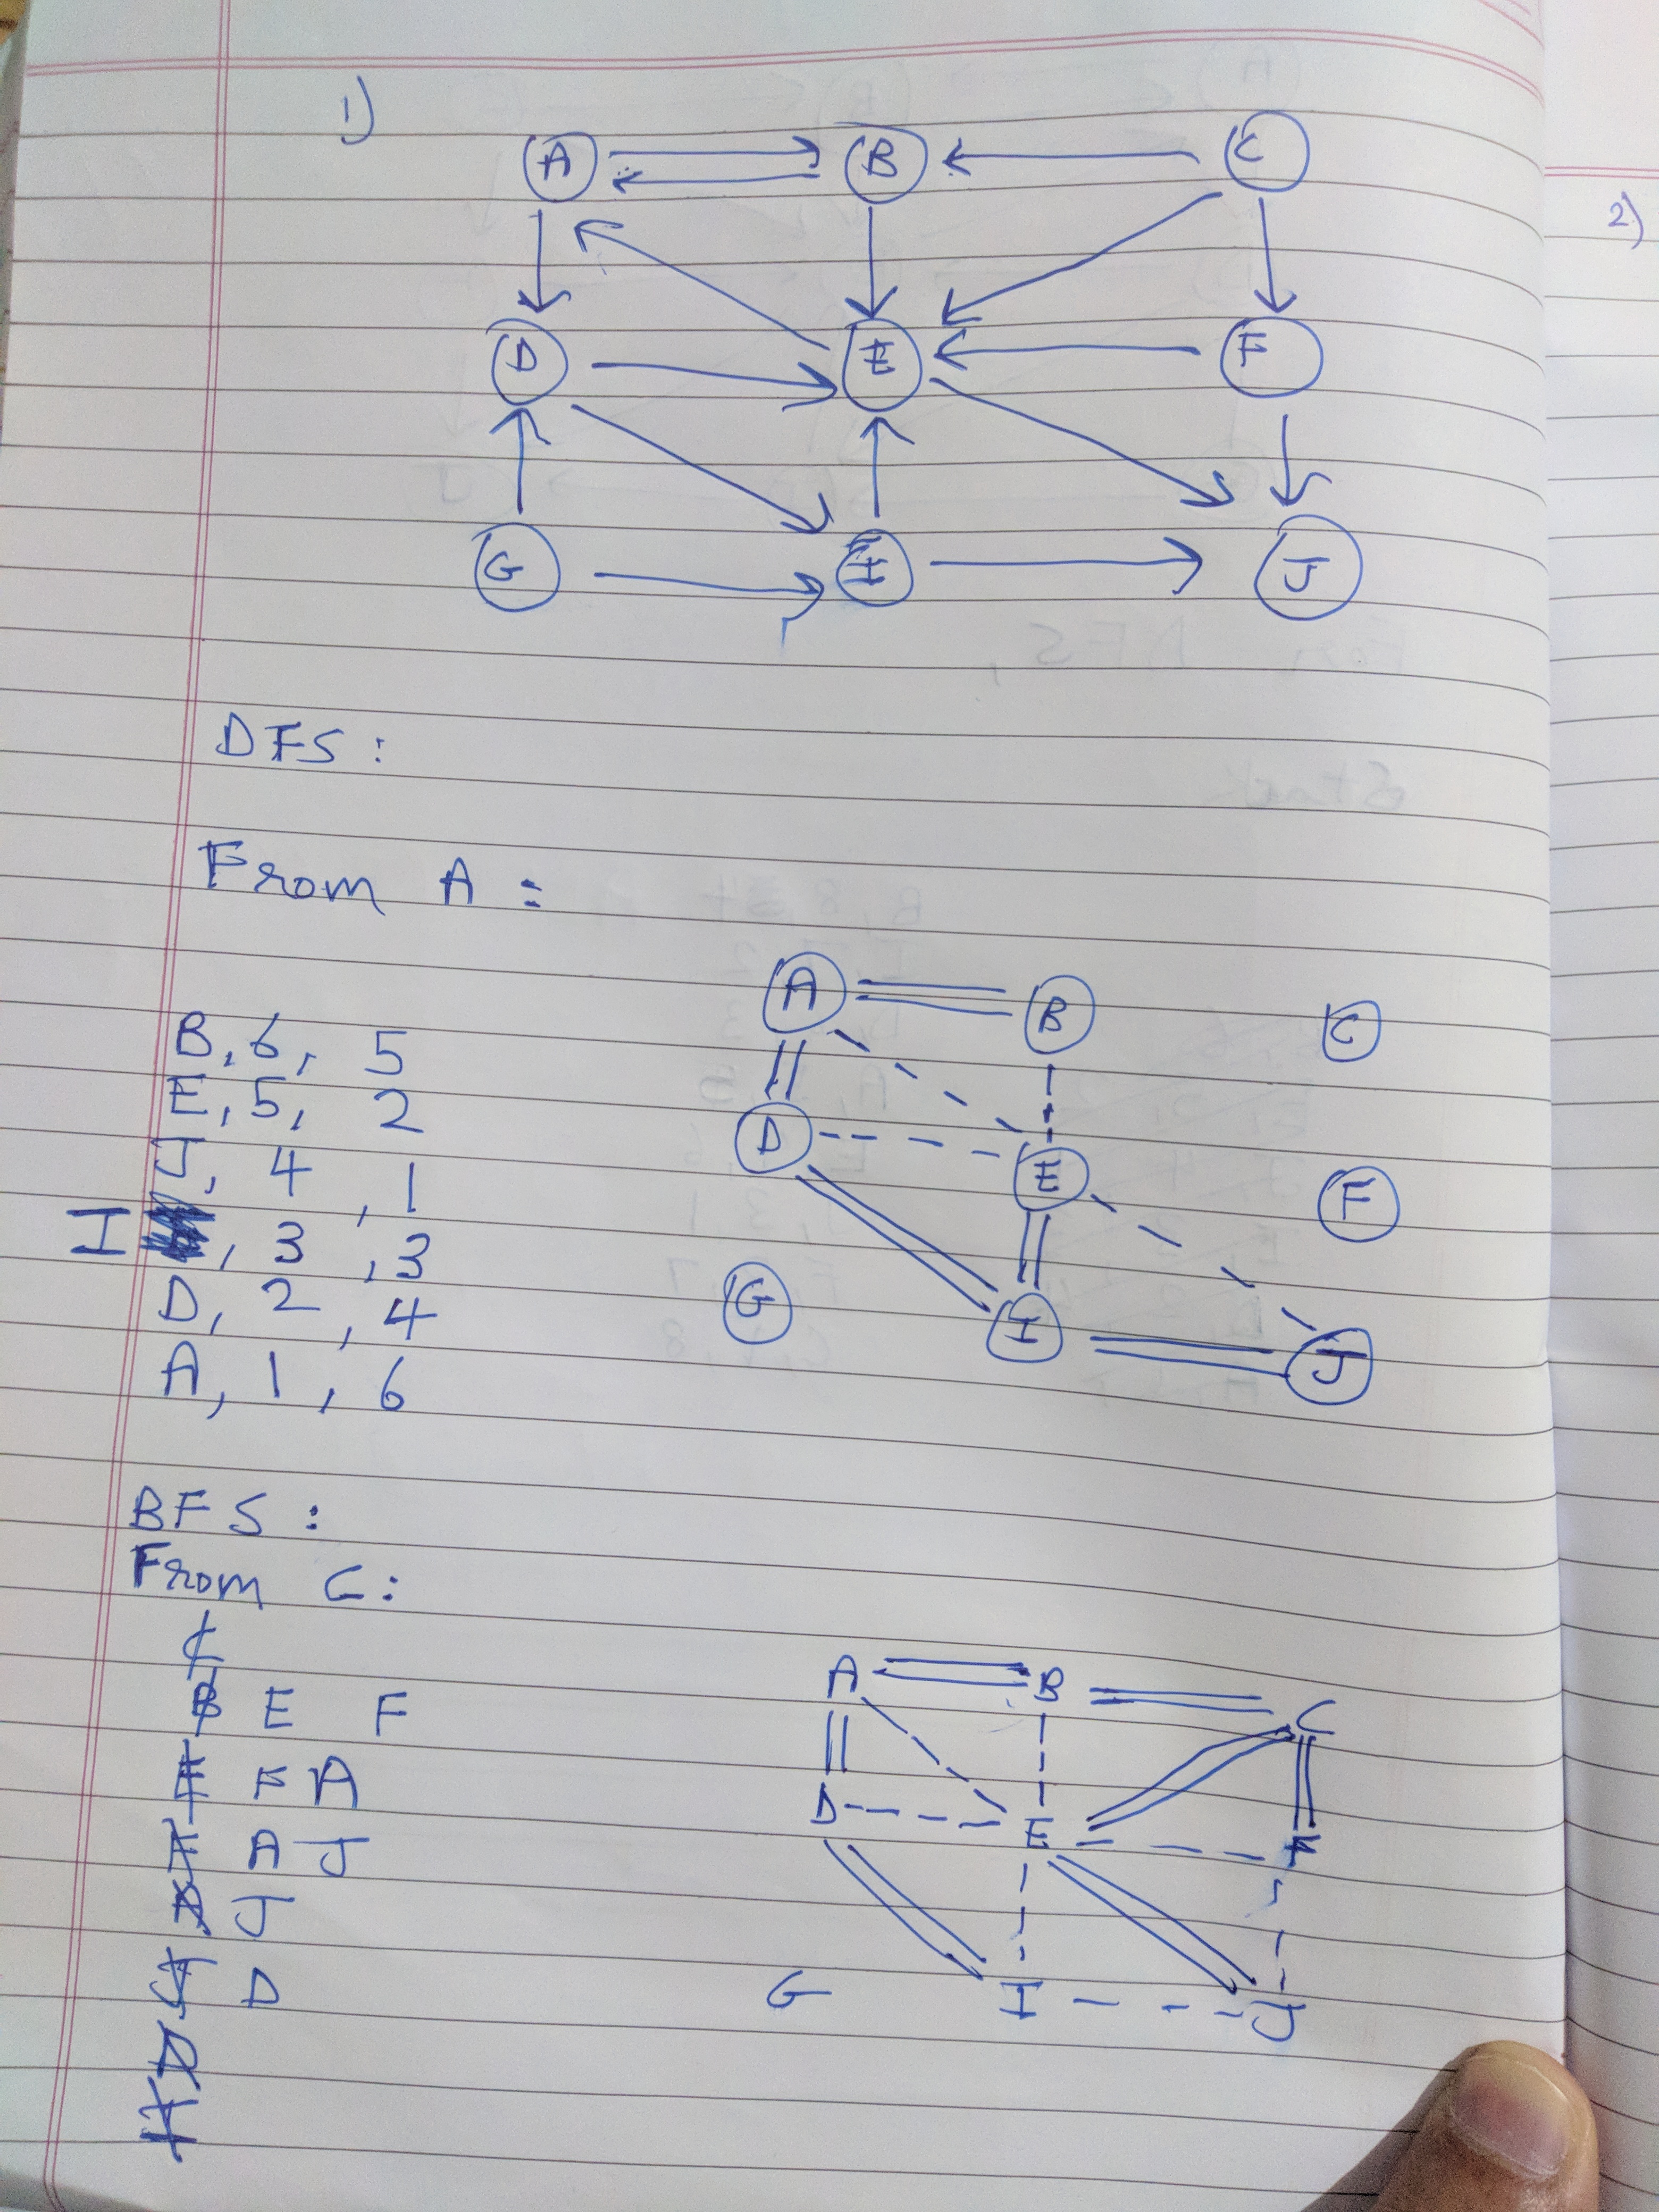 1)
2)
A B C
D E F
G I J
DFS :
From A :
B, 6, 5
E, 5, 2
J, 4, 1
I, 3, 3
D, 2, 4
A, 1, 6
A B C
D E F
G I J
BFS :
From C :
C
B E F
E F A
F A J
A J
J D
D
I
A B C
D E F
G I J